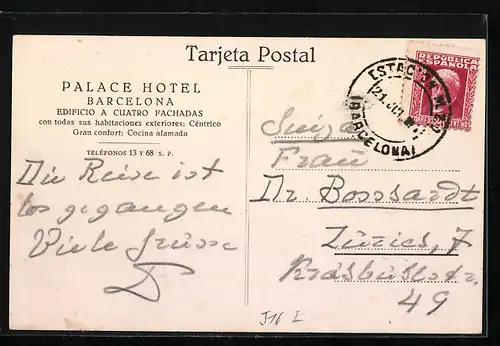 Tarjeta Postal
PALACE HOTEL
BARCELONA
EDIFICIO A CUATRO FACHADAS
con todas sus habitaciones exteriores; Céntrico
Gran confort; Cocina afamada
TELÉFONOS 13 Y 68 S. P.
Die Reise ist
los gegangen
Viele Grüsse
D
REPÚBLICA
ESPAÑOLA
ESTACION
21 JUL
(BARCELONA)
Suiza
Frau
Dr. Bosshardt
Zürich, 7
49
J16 I